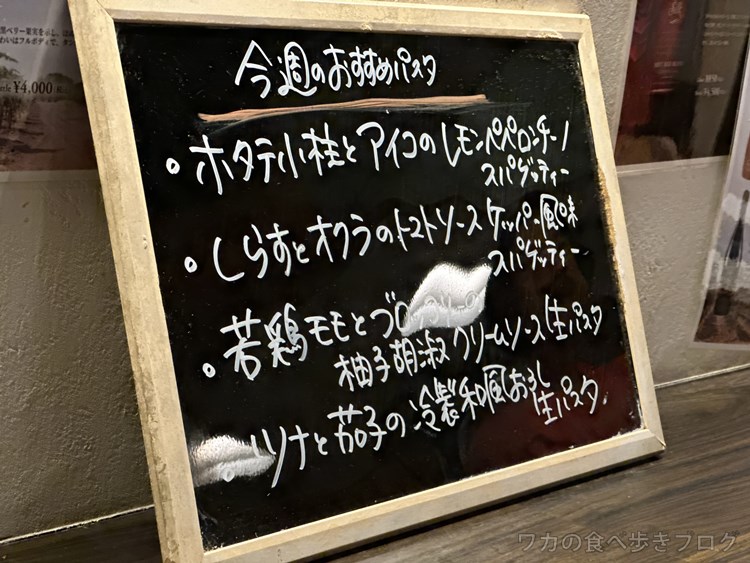 黒ベリー果実を示し、ほ
わいはフルボディで、タン
¥4,000
今週のおすすめパスタ
ホタテ小柱とアイコのレモンペペロンチーノ
スパゲッティー
しらすとオクラのトマトソース ケッパー風味
スパゲッティー
若鶏モモとブロッコリーの
柚子胡淑クリームソース 生パスタ
ツナと茄子の冷製和風おろし
生パスタ
ワカの食べ歩きブログ